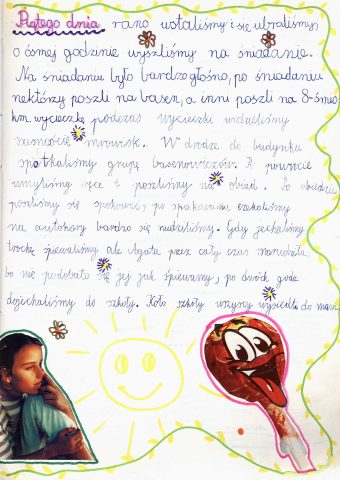 Piątego dnia rano wstaliśmy i się ubraliśmy,
o ósmej godzinie wyszliśmy na śniadanie.
Na śniadaniu było bardzo głośno, po śniadaniu
niektórzy poszli na basen, a inni poszli na 8-śmio
km. wycieczkę podczas wycieczki widzieliśmy
sześcioście mrowisk. W drodze do budynku
spotkaliśmy grupę basenowiczów. Po powrocie
umyliśmy ręce i poszliśmy na obiad. Po obiedzie
poszliśmy się spakować, po spakowaniu czekaliśmy
na autokary bardzo się nudziliśmy. Gdy jechaliśmy
trochę śpiewaliśmy ale Agata przez cały czas narzekała,
bo nie podobało się jej jak śpiewamy, po dwóch godz
dojechaliśmy do szkoły. Koło szkoły wszyscy wysiedli do mam